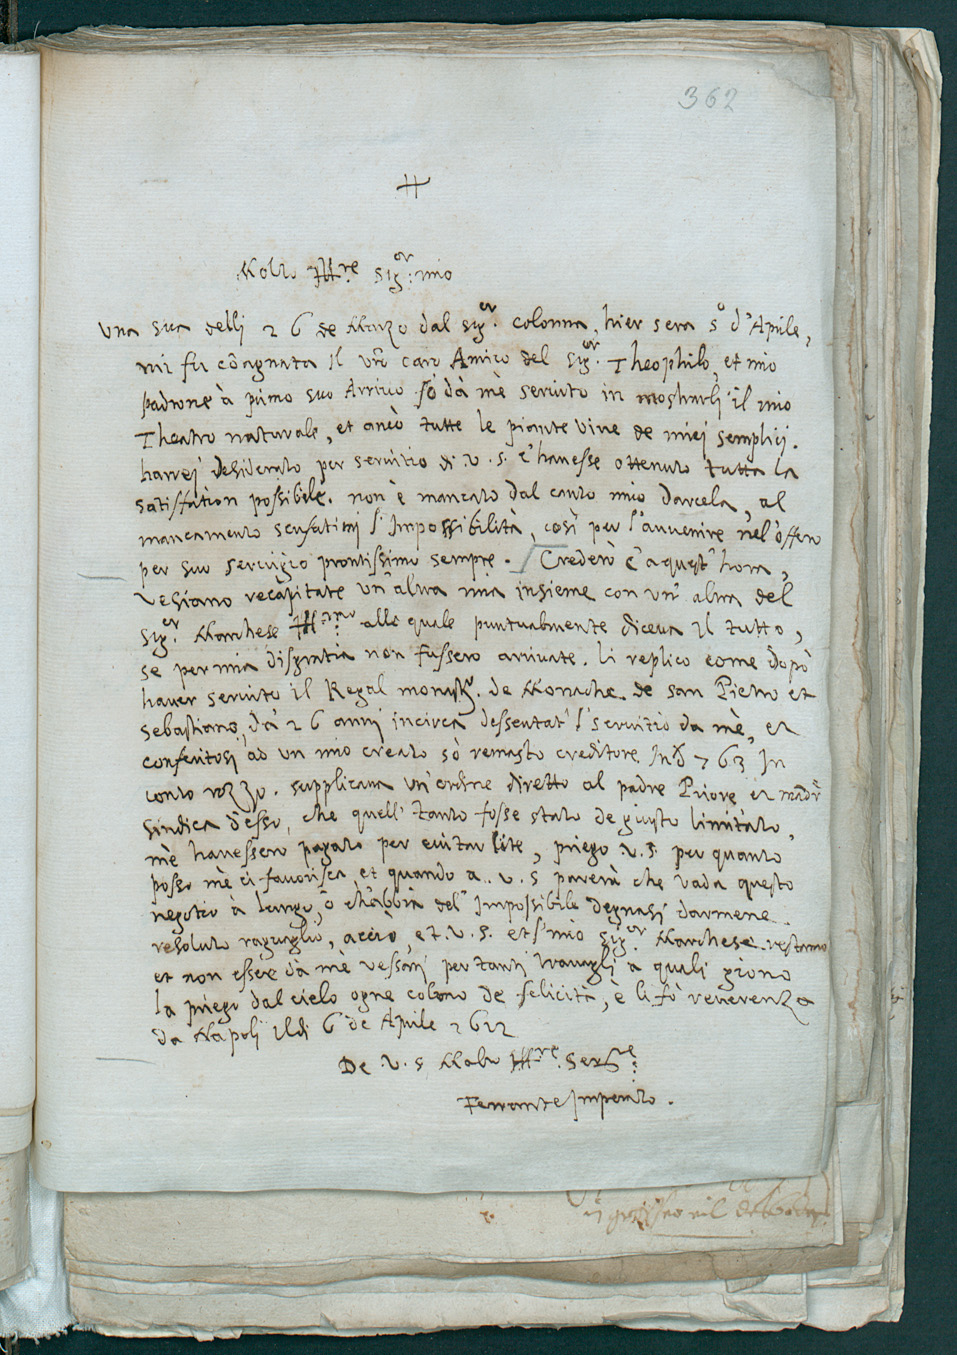 362
Molto Ill.re Sig.or mio
Una sua delli 26 de Marzo dal sig.or Colonna, hier sera 5º d'Aprile,
mi fu cõsgnata Il vr̃o caro Amico del Sig.or Theophilo, et mio
padrone à primo suo Arrivo fò dà mè servito in mostrarli il mio
Theatro naturale, et ancò tutte le piante vive de miei semplici.
harrej desiderato per servitio di v. s. c'havesse ottenuto tutta la
satisfation possibile. non è mancato dal canto mio darcela, al
mancamento scusatimi l'Impossibilità, così per l'avvenire nel'offero
per suo servigio prontissimo sempre. Crederò c'a quest'hora,
vesiano recapitate un'altra mia insieme con un' altra del
Sig.or Marchese Ill.mo alle quale puntualmente diceva il tutto,
se per mia disgratia non fussero arrivate. li replico come dopò
haver servito il Regal monast.º de Monache de san Pietro et
Sebastiano, dà 26 anni incirca dessentat' l'servitio da mè, et
conferitosi ad un mio creato sò remasto creditore In 763 In
conto rozzo. supplicava un'ordine diretto al padre Priore et madr̃
sindica d'esso, che quell' tanto fosse stato de giusto limitato,
mè havessero pagato per evitar lite, priego v. s. per quanto
posso mè ci favorisca et quando a v. s parerà che vada questo
negotio à lungo, ò ch'abbia del' Impossibile degnasi darmene
resoluto raguaglio, acciò, et v. s. et l'mio sig.or Marchese restano
et non essere dà mè vessati per tanti travagli a quali giono
la priego dal cielo ogne colmo de felicità, è li fò reverenza
da Napoli Il dì 6 de Aprile 1612
De v. s Molto Ill.re Ser.re
Ferrante Imperato.